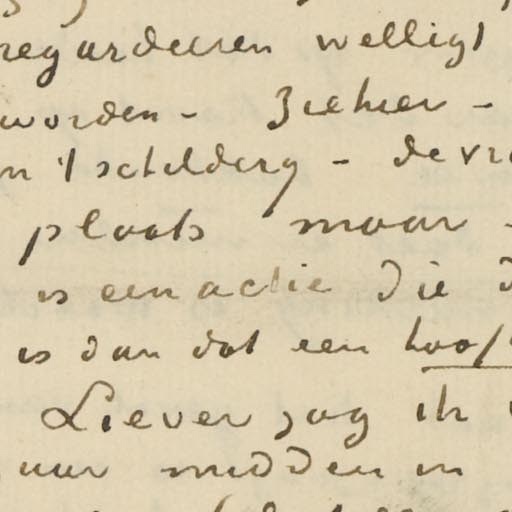 regardeeren welligt
worden - Ziehier -
't schilderij - de
plaats maar -
is een actie die
is dan dat een hoof
Liever zag ik
uur midden in